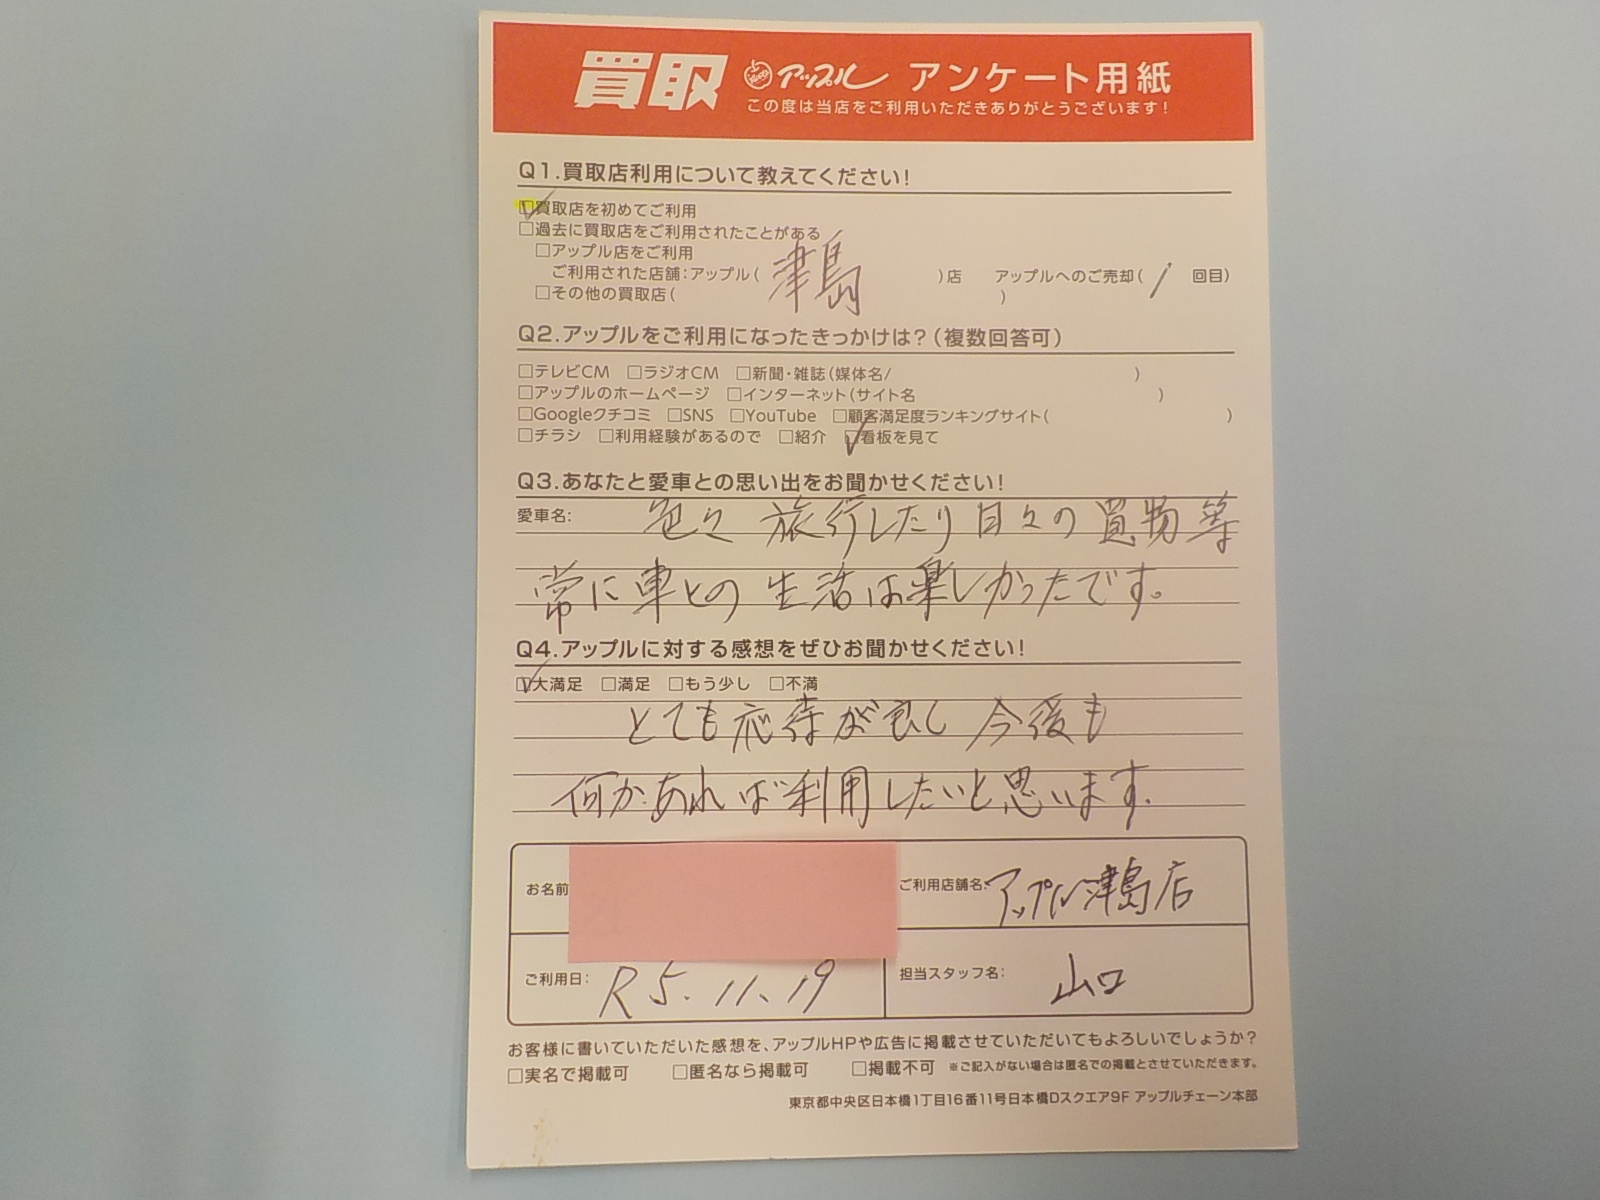 買取 アップル アンケート用紙
この度は当店をご利用いただきありがとうございます!
Q1.買取店利用について教えてください!
☑買取店を初めてご利用
□過去に買取店をご利用されたことがある
□アップル店をご利用
ご利用された店舗:アップル( 津島 )店 アップルへのご売却( 1 回目)
□その他の買取店( )
Q2.アップルをご利用になったきっかけは?(複数回答可)
□テレビCM □ラジオCM □新聞・雑誌(媒体名/ )
□アップルのホームページ □インターネット(サイト名 )
□Googleクチコミ □SNS □YouTube □顧客満足度ランキングサイト( )
□チラシ □利用経験があるので □紹介 ☑看板を見て
Q3.あなたと愛車との思い出をお聞かせください!
愛車名: 色々 旅行したり日々の買物等
常に車との生活は楽しかったです。
Q4.アップルに対する感想をぜひお聞かせください!
☑大満足 □満足 □もう少し □不満
とても応待が良し 今後も
何かあれば利用したいと思います.
お名前 ご利用店舗名: アップル津島店
ご利用日: R5.11.19 担当スタッフ名: 山口
お客様に書いていただいた感想を、アップルHPや広告に掲載させていただいてもよろしいでしょうか?
□実名で掲載可 □匿名なら掲載可 □掲載不可 ※ご記入がない場合は匿名での掲載とさせていただきます。
東京都中央区日本橋1丁目16番11号日本橋Dスクエア9F アップルチェーン本部